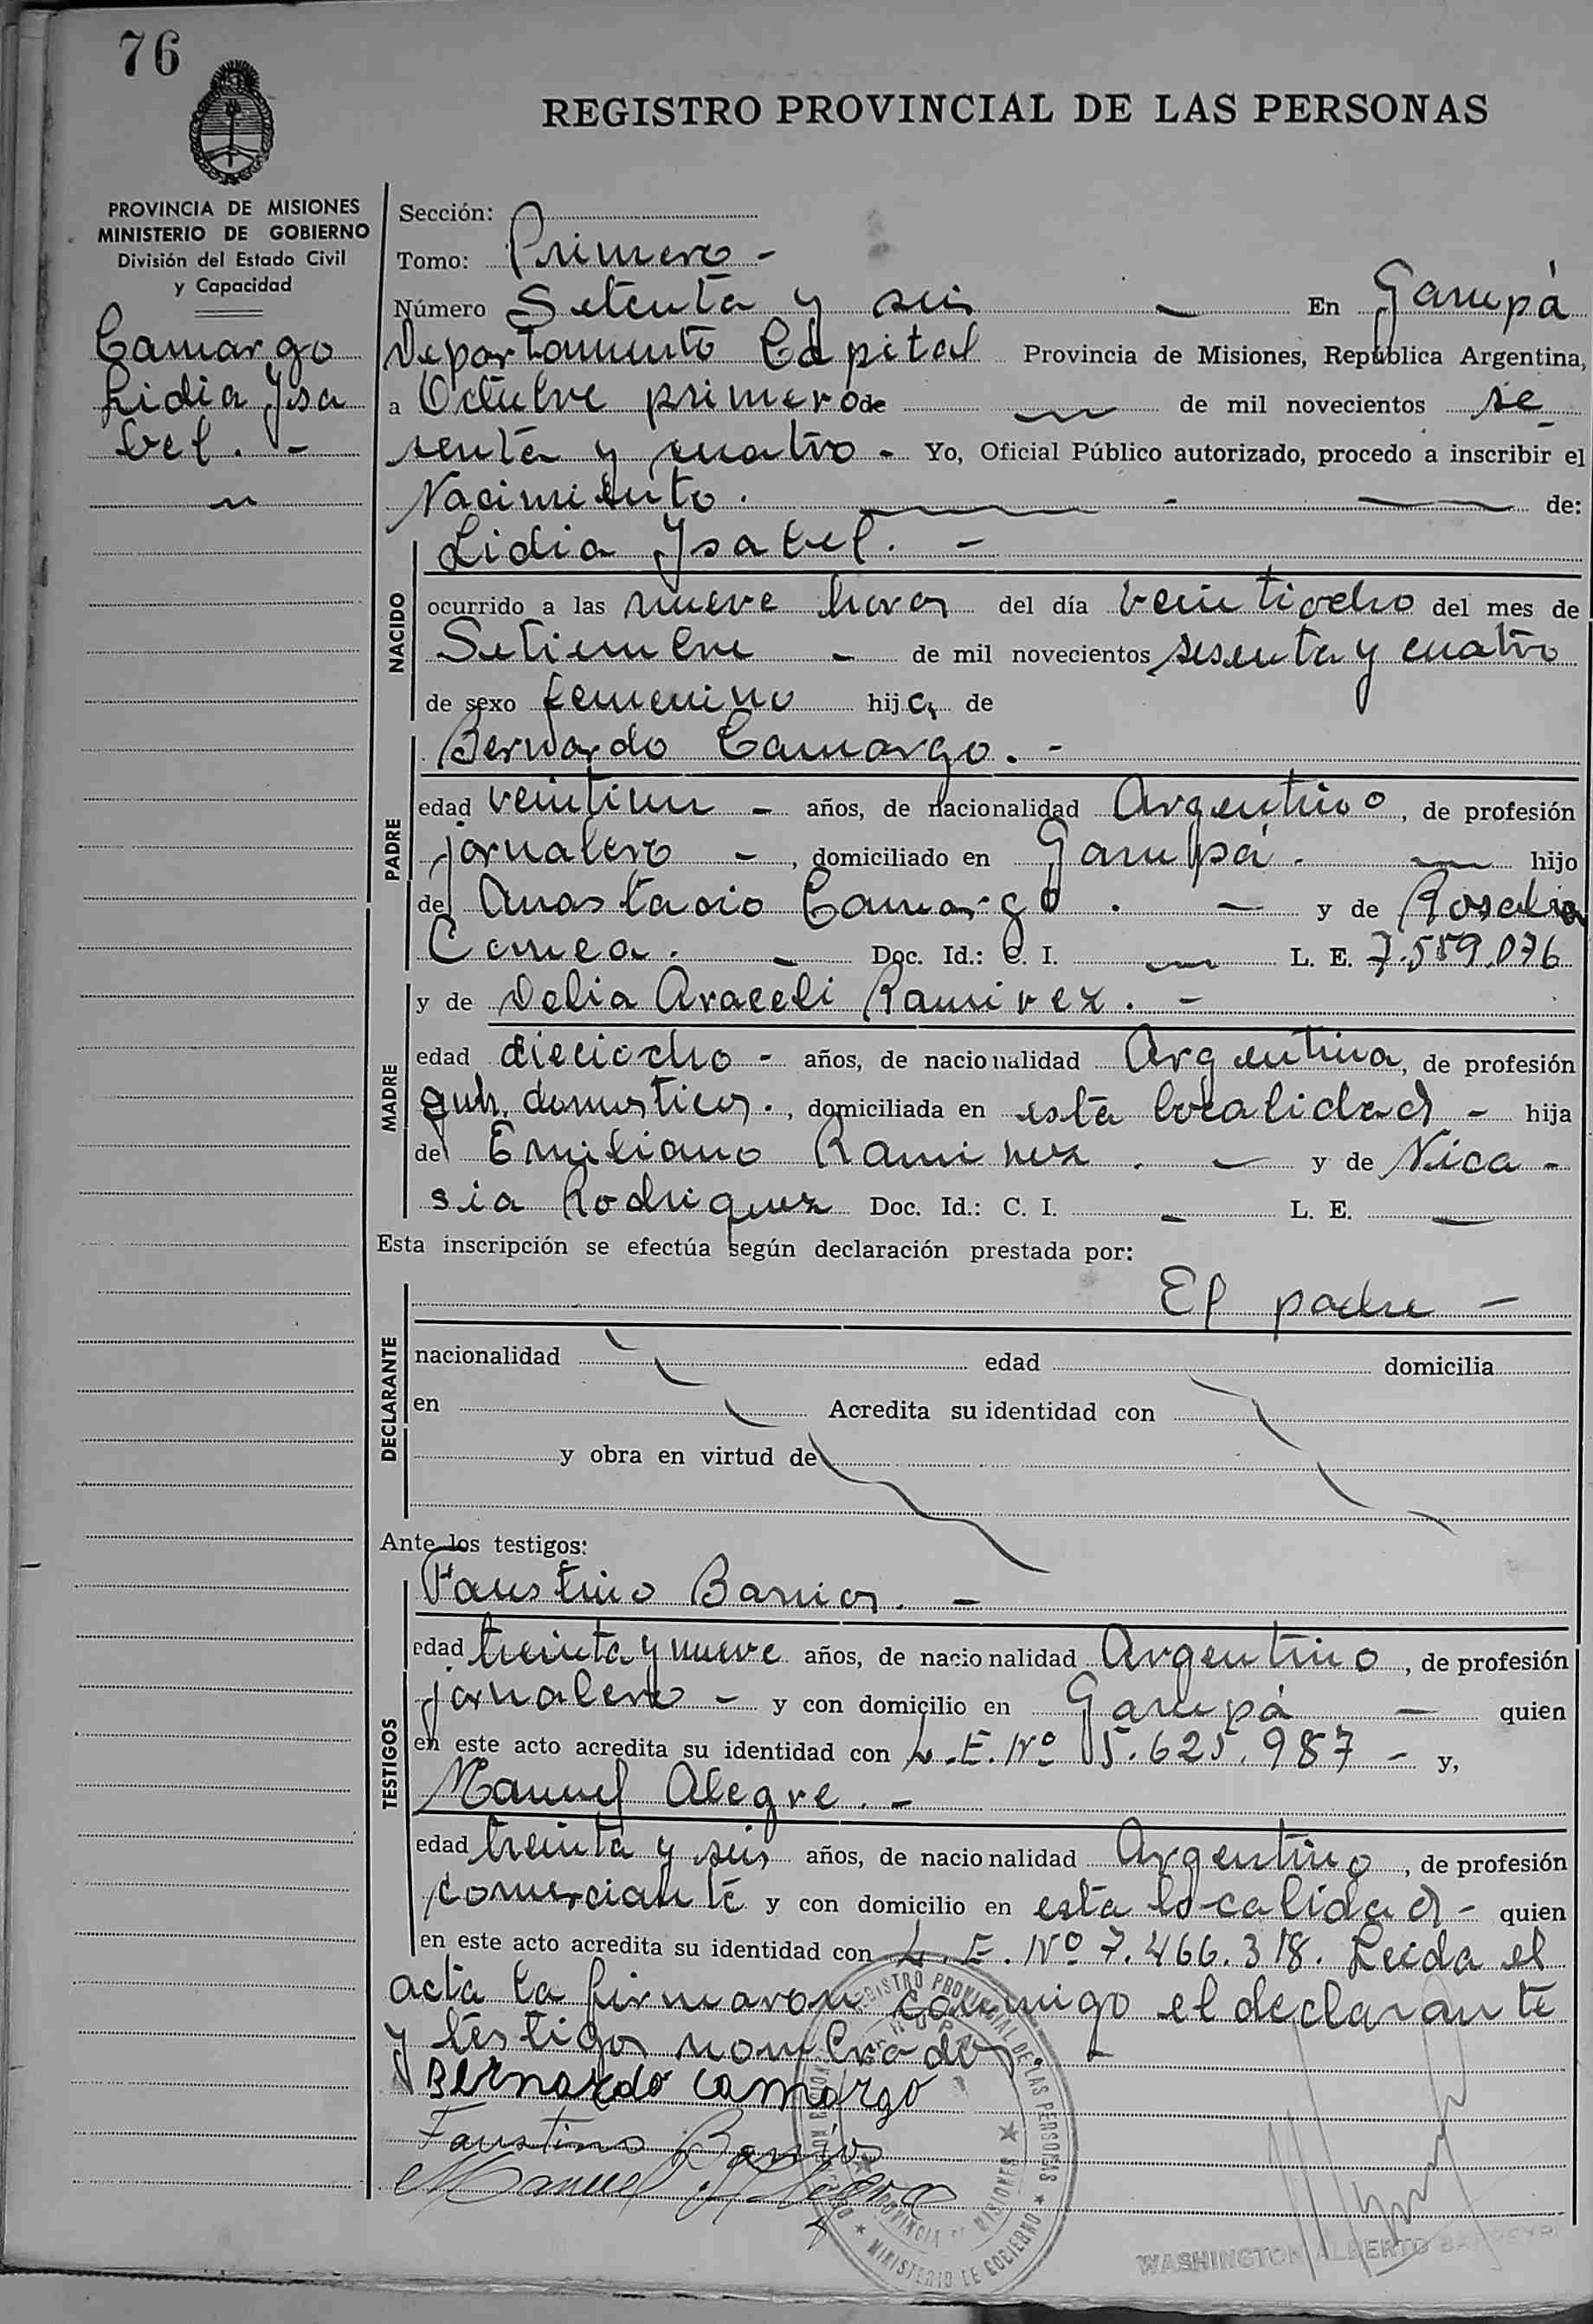 76
REGISTRO PROVINCIAL DE LAS PERSONAS
PROVINCIA DE MISIONES
MINISTERIO DE GOBIERNO
División del Estado Civil
y Capacidad
Camargo
Lidia Ysa
bel. -
Sección:
Tomo: Primero -
Número Setenta y seis — En Garupá
Departamento Capital Provincia de Misiones, República Argentina,
a Octubre primero de — de mil novecientos se
senta y cuatro - Yo, Oficial Público autorizado, procedo a inscribir el
Nacimiento. — - — de:
NACIDO
Lidia Ysabel. -
ocurrido a las nueve horas del día veintiocho del mes de
Setiembre - de mil novecientos sesenta y cuatro
de sexo femenino hija de
PADRE
Bernardo Camargo. -
edad veintiun - años, de nacionalidad Argentino, de profesión
jornalero -, domiciliado en Garupá. — hijo
de Anastacio Camargo. — y de Rosalia
Correa. - Doc. Id.: C. I. — L. E. 7.559.076
MADRE
y de Delia Araceli Ramirez. -
edad dieciocho - años, de nacionalidad Argentina, de profesión
queh. domesticos., domiciliada en esta localidad - hija
de Emiliano Ramirez. - y de Nica -
sia Rodriguez Doc. Id.: C. I. - L. E. —
Esta inscripción se efectúa según declaración prestada por:
DECLARANTE
El padre -
nacionalidad edad domicilia
en Acredita su identidad con
y obra en virtud de
Ante los testigos:
TESTIGOS
Faustino Barrios. -
edad treinta y nueve años, de nacionalidad Argentino, de profesión
jornalero - y con domicilio en Garupá — quien
en este acto acredita su identidad con L.E. Nº 5.625.987 - y,
Manuel Alegre. -
edad treinta y seis años, de nacionalidad Argentino, de profesión
comerciante y con domicilio en esta localidad - quien
en este acto acredita su identidad con L.E. Nº 7.466.318. Leida el
acta la firmaron conmigo el declarante
y testigos nombrados. -
Bernardo Camargo
Faustino Barrios
Manuel Alegre
REGISTRO PROVINCIAL DE LAS PERSONAS
GARUPA
PROVINCIA DE MISIONES
MINISTERIO DE GOBIERNO
WASHINGTON ALBERTO